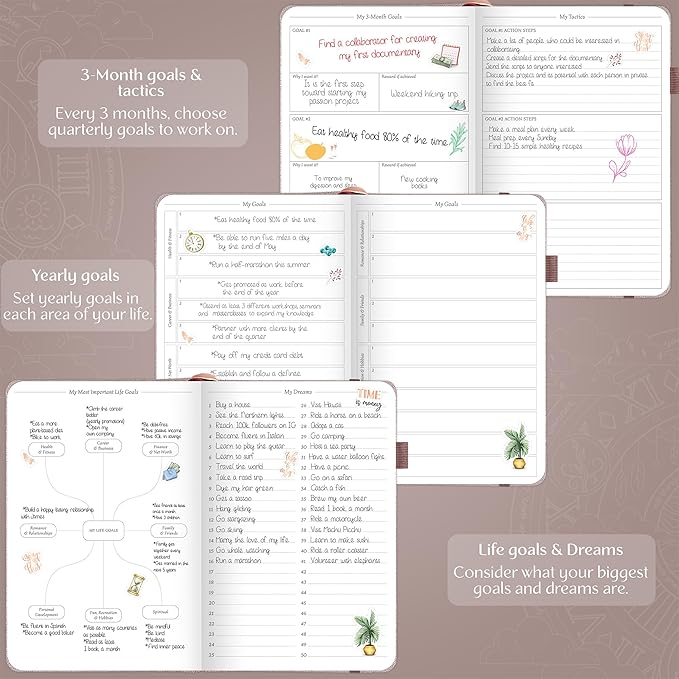 3-Month goals &
tactics
Every 3 months, choose
quarterly goals to work on.
My 3-Month Goals
GOAL #1
Find a collaborator for creating
my first documentary
Why I want it?
It is the first step
toward starting my
passion project
Reward if achieved
Weekend hiking trip
GOAL #2
Eat healthy food 80% of the time
Why I want it?
To improve my
digestion and
Reward if achieved
New cooking
books
My Tactics
GOAL #1 ACTION STEPS
Make a list of people who could be interested in
collaborating
Create a detailed script for the documentary
Send the script to anyone interested
Discuss the project and its potential with each person in private
to find the best fit
GOAL #2 ACTION STEPS
Make a meal plan every week
Meal prep every Sunday
Find 10-15 simple healthy recipes
Yearly goals
Set yearly goals in
each area of your life.
My Goals
Health & Fitness
1
*Eat healthy food 80% of the time
2
*Be able to run five miles a day
by the end of May
3
*Run a half-marathon this summer
Career & Business
1
*Get promoted at work before
the end of the year
2
*Attend at least 3 different workshops, seminars
and masterclasses to expand my knowledge
3
*Partner with more clients by the
end of the quarter
Net Worth
1
*Pay off my credit card debt
2
*Establish and follow a definee
My Goals
Romance & Relationships
1
2
3
Family & Friends
1
2
3
& Hobbies
1
2
Life goals & Dreams
Consider what your biggest
goals and dreams are.
My Most Important Life Goals
*Eat a more
plant-based diet
*Bike to work
Health
& Fitness
*Climb the career
ladder
(yearly promotions)
*Open my
own company
Career &
Business
*Be debt-free
*Have passive income
*Have 10k in savings
Finance
& Net Worth
*Build a happy lasting relationship
with James
Romance
& Relationships
MY LIFE GOALS
*See friends at least
once a month
*Have 3 children
Family
& Friends
*Family gets
together every
weekend
*Get married in the
next 5 years
Personal
Development
*Be fluent in Spanish
*Become a good baker
Fun, Recreation
& Hobbies
*Visit as many countries
as possible
*Read at least
1 book a month
Spiritual
*Be mindful
*Be kind
*Meditate
*Find inner peace
My Dreams
TIME
is money
1 Buy a house
2 See the Northern lights
3 Reach 100k followers on IG
4 Become fluent in Italian
5 Learn to play the guitar
6 Learn to surf
7 Travel the world
8 Take a road trip
9 Dye my hair green
10 Get a tattoo
11 Hang gliding
12 Go stargazing
13 Go skiing
14 Marry the love of my life
15 Go whale watching
16 Run a marathon
17
18
19
20
21
22
23
24
25
26 Visit Hawaii
27 Ride a horse on a beach
28 Adopt a cat
29 Go camping
30 Host a tea party
31 Have a water balloon fight
32 Have a picnic
33 Go on a safari
34 Catch a fish
35 Brew my own beer
36 Read 1 book a month
37 Ride a motorcycle
38 Visit Machu Picchu
39 Learn to make sushi
40 Ride a roller coaster
41 Volunteer with elephants
42
43
44
45
46
47
48
49
50